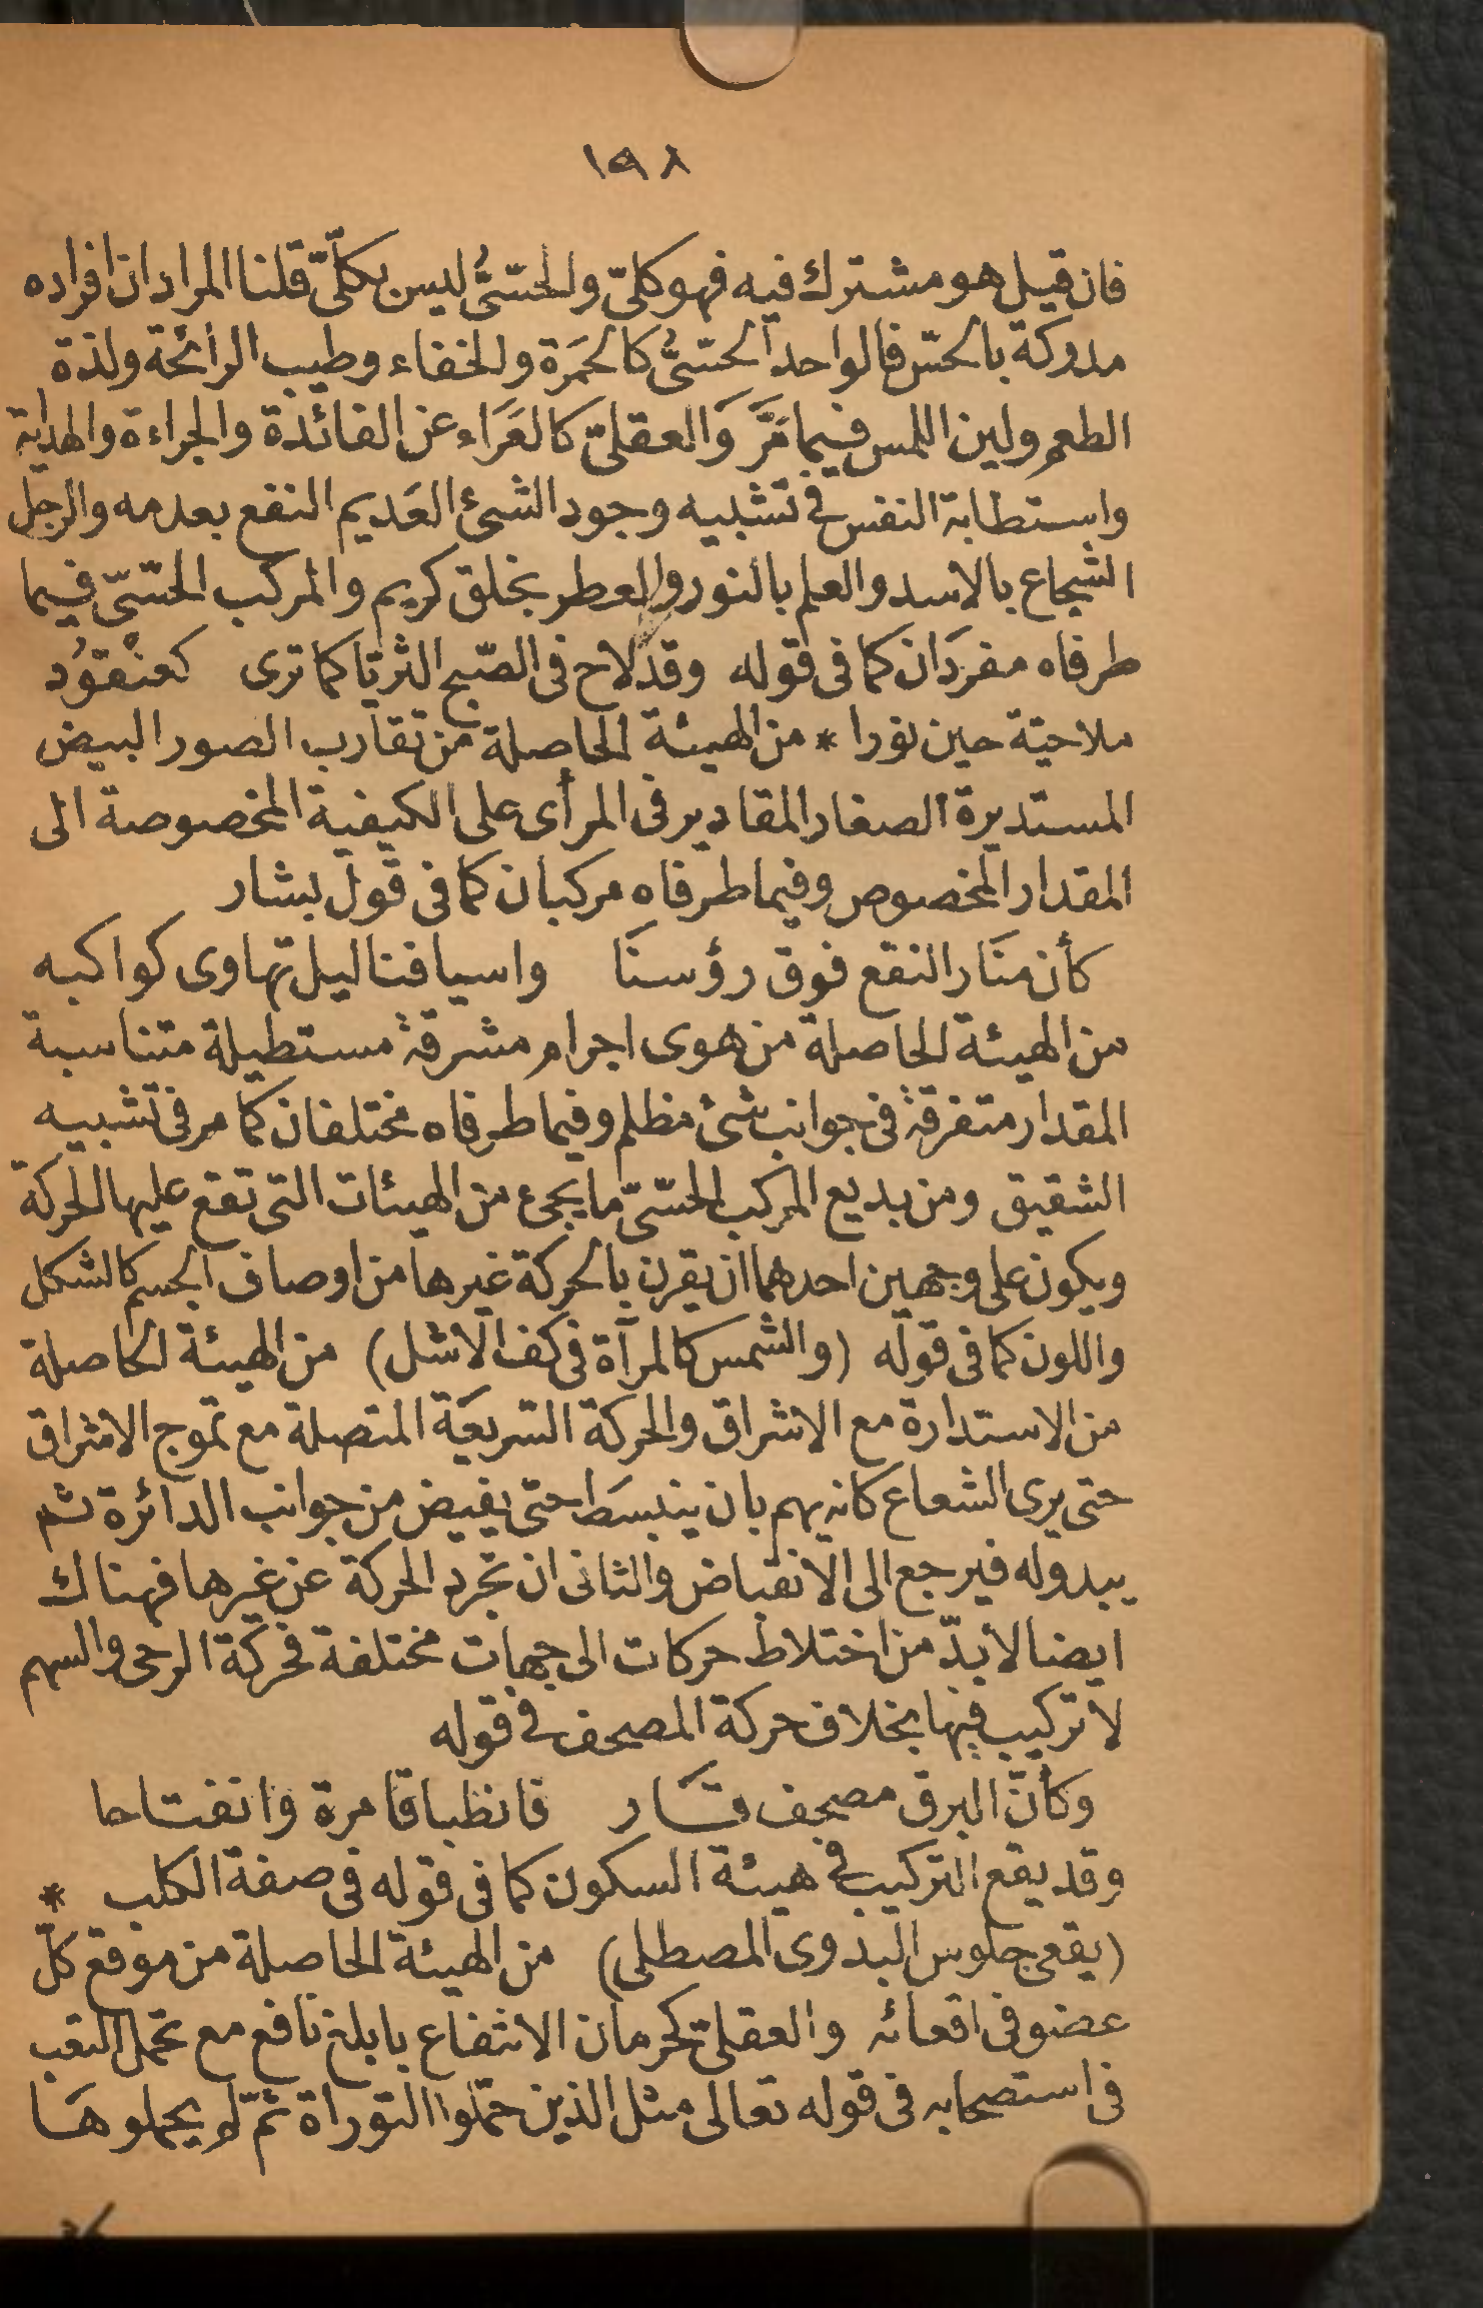 ١٩٨
فان قيل هو مشترك فيه فهو كلىّ والحسّىُّ ليس بكلّىّ قلنا المراد ان افراده
مدركة بالحسّ فالواحد الحسّىُّ كالحمَرة والخفاء وطيب الرائحة ولذة
الطعم ولين اللمس فيما مَرَّ وَالعقلىّ كالعَرَاء عن الفائدة والجراءة والهداية
واستطابة النفس فى تشبيه وجود الشئ العَديم النفع بعدمه والرجل
الشجاع بالاسد والعلم بالنور والعطر بخلق كريم والمركب الحسّىّ فيما
طرفاه مفردَان كما فى قوله وقد لاح فى الصّبح الثريّا كما ترى كعنْقوُد
ملاحيّة حين نورا * من الهيئة الحاصلة من تقارب الصور البيض
المستديرة الصغار المقادير فى المرأى على الكيفية المخصوصة الى
المقدار المخصوص وفيما طرفاه مركبان كما فى قول بشار
كأن مثَار النقع فوق رؤسنَا واسيافنا ليل تهاوى كواكبه
من الهيئة الحاصلة من هوى اجرام مشرقة مستطيلة متناسبة
المقدار متفرقة فى جوانب شئ مظلم وفيما طرفاه مختلفان كما مر فى تشبيه
الشقيق ومن بديع المركب الحسّىّ ما يجىء من الهيئات التى تقع عليها الحركة
ويكون على وجهين احدهما ان يقرن بالحركة غيرها من اوصاف الجسم كالشكل
واللون كما فى قوله (والشمس كالمرآة فى كف الاشل) من الهيئة الحاصلة
من الاستدارة مع الاشراق والحركة السّريعَة المتصلة مع تموج الاشراق
حتى يرى الشعاع كانه يهم بان ينبسَط حتى يفيض من جوانب الدائرة ثم
يبدوله فيرجع الى الانقباض والثانى ان تجرد الحركة عن غيرها فهناك
ايضا لا بدّ من اختلاط حركات الى جهات مختلفة فحركة الرحى والسهم
لا تركيب فيها بخلاف حركة المصحف فى قوله
وكأنّ البرق مصحف قَار فانظباقا مرة وانفتاحا
وقد يقع التركيب فى هيئة السكون كما فى قوله فى صفة الكلب *
(يقعى جلوس البدوى المصطلى) من الهيئة الحاصلة من موقع كلّ
عضو فى اقعائه والعقلىّ كحرمان الانتفاع بابلغ نافع مع تحمل التعب
فى استصحابه فى قوله تعالى مثل الذين حمّلوا التوراة ثمّ لم يحملوهَا